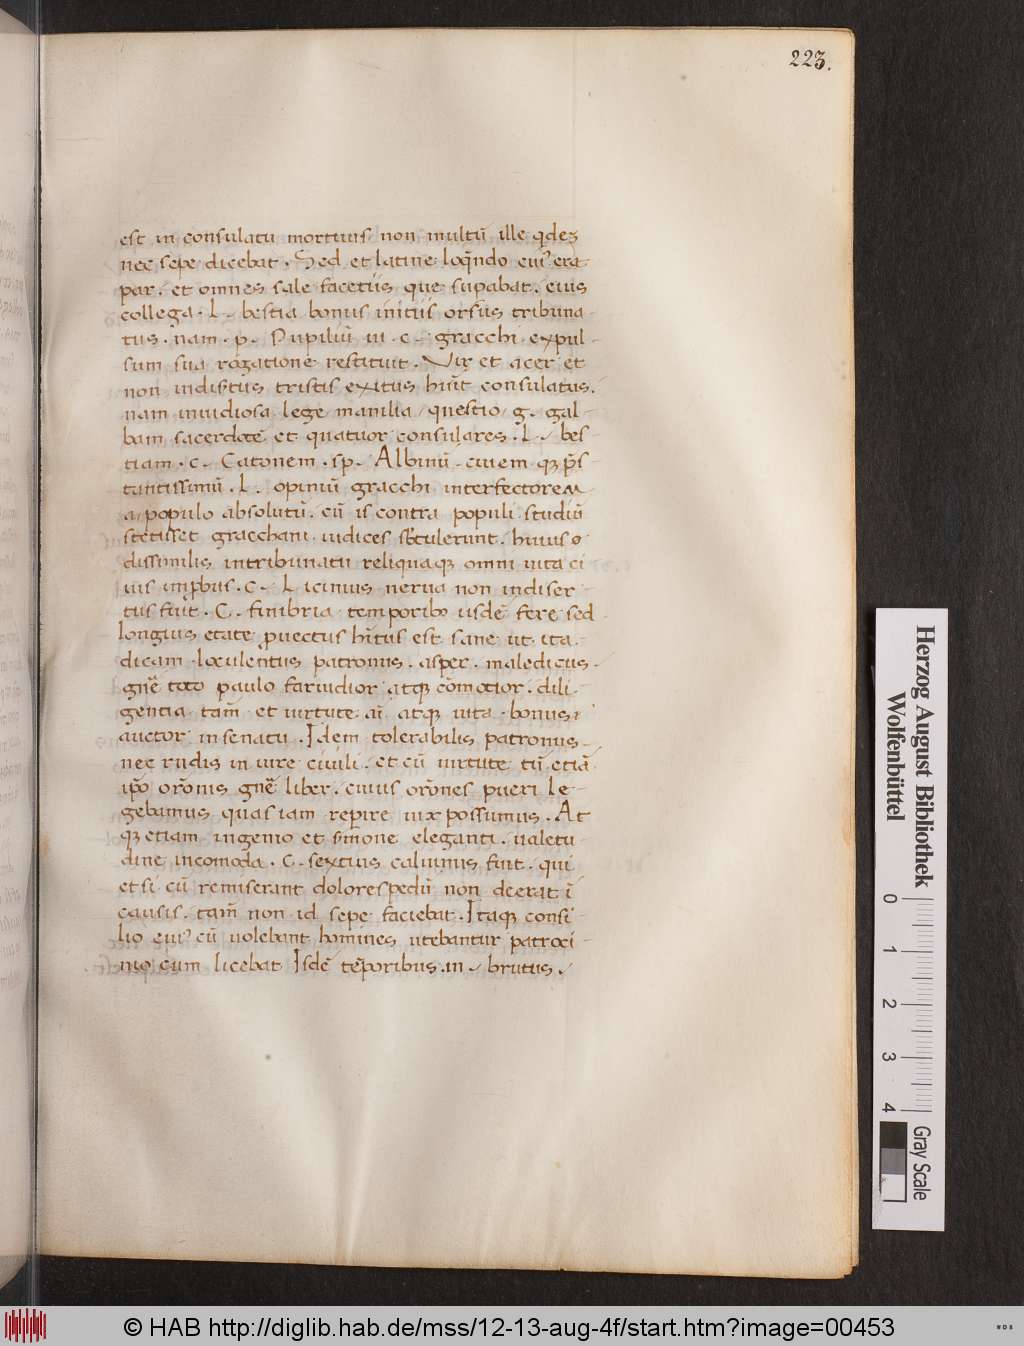 223.
est in consulatu mortuus non multū ille qdez
nec sepe dicebat. Sed et latine loqn̄do cui' era
par. et omnes sale facetiis que supabat. eius
collega. L. bestia bonus initiis orsus tribuna-
tus. nam. p. Pupiliū ui. c. gracchi. expul-
sum sua rogatione restituit. Vir et acer et
non indistus tristis exitus hūit consulatus.
nam inuidiosa lege manilia questio g. gal-
bam sacerdotē et quatuor consulares. L. bes-
tiam. c. Catonem. sp. Albinū. ciuem qz p̄s-
tantissimū. L. opiniū gracchi interfectorem
a populo absolutū. cū is contra populi studiū
stetisset gracchani iudices sustulerunt. huius
dissimilis in tribunatu reliquaqz omni uita ci
uis imp̄bus. C. Licinius nerua non indiser-
tus fuit. C. fimbria temporibus iisdē fere sed
longius etate prouectus hītus est sane ut ita
dicam. loculentus patronus. asper. maledicus.
gn̄e toto paulo faruidior atqz cōmotior. dili-
gentia tam̄ et uirtute aī atqz uita bonus
auctor in senatu. Idem tolerabilis patronus.
nec rudis in iure ciuili. et cū uirtute tū etiā
ip̄o or̄onis gn̄e liber. cuius or̄ones pueri le-
gebamus quas iam reperire uix possumus. At
qz etiam ingenio et s̄mone eleganti. ualetu-
dine incomoda. C. sextius caluinus fuit. qui
etsi cū remiserant dolores pedū non deerat ī
causis. tam̄ non id sepe faciebat. Itaqz consi-
lio eui' cū uolebant homines utebantur patroci-
nio cum licebat Isdē tēporibus. m. brutus.
Herzog August Bibliothek
Wolfenbüttel
0 1 2 3 4
Gray Scale
© HAB http://diglib.hab.de/mss/12-13-aug-4f/start.htm?image=00453